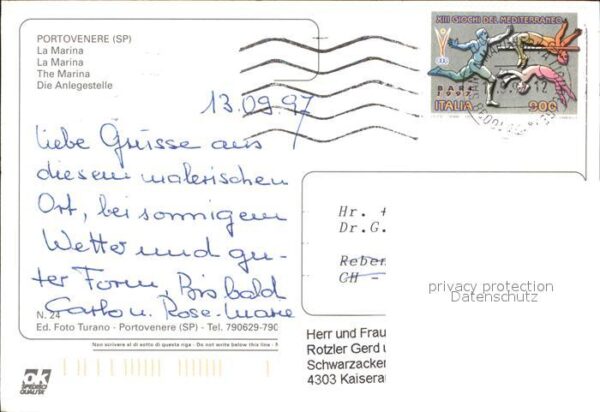 PORTOVENERE (SP)
La Marina
La Marina
The Marina
Die Anlegestelle
XIII GIOCHI DEL MEDITERRANEO
BARI
1997
ITALIA 900
13.09.97
liebe Grüsse aus
diesem malerischen
Ort, bei sonnigem
Wetter und gu-
ter Form, Bis bald
Carlo u. Rose-Marie
Hr.
Dr.G.
Reben
CH -
privacy protection
Datenschutz
N. 24
Ed. Foto Turano - Portovenere (SP) - Tel. 790629-790
Non scrivere al di sotto di questa riga - Do not write below this line -
Herr und Frau
Rotzler Gerd u
Schwarzacker
4303 Kaisera